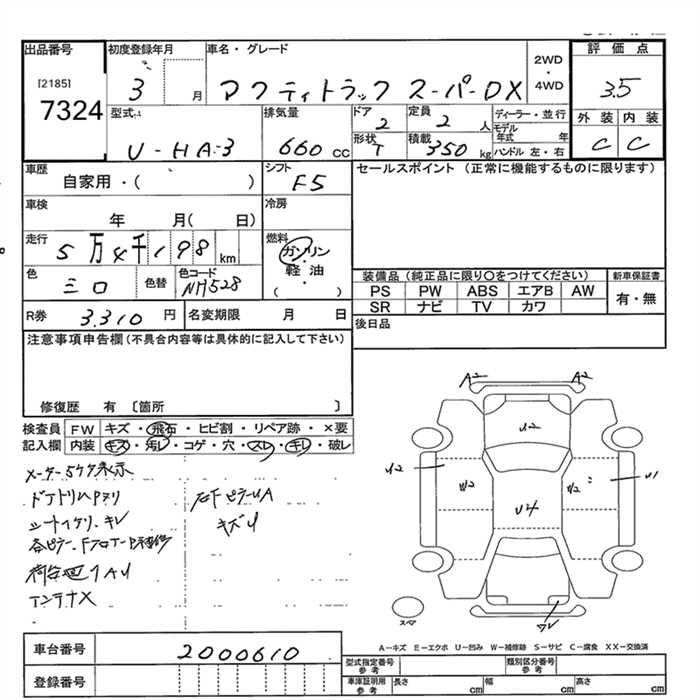 出品番号 初度登録年月 車名・グレード 評価点
[2185] 7324 3 月 アクティトラック スーパーDX 2WD ・ 4WD 3.5
型式 排気量 ドア 定員 ディーラー・並行 外装 内装
U-HA-3 660 cc 2 2 人 モデル年式 年 C C
形状 T 積載 350 kg ハンドル 左・右
車歴 シフト セールスポイント (正常に機能するものに限ります)
自家用・( ) F5
車検 年 月( 日) 冷房
走行 5万4千198 km 燃料 ガソリン・軽油・( )
色 シロ 色替 色コード NH528
装備品 (純正品に限り○をつけてください) 新車保証書
PS PW ABS エアB AW 有・無
SR ナビ TV カワ
R券 3,310 円 名変期限 月 日 後日品
注意事項申告欄 (不具合内容等は具体的に記入して下さい)
修復歴 有 〔箇所 〕
検査員 FW キズ・飛石・ヒビ割・リペア跡・×要
記入欄 内装 キズ・汚レ・コゲ・穴・スレ・キレ・破レ
メーター5ケタ表示
シートイタリ、キレ
アンテナX
キズU
A2 A2
U2
U2 W2 U4 U1
スペア
A−キズ E−エクボ U−凹み W−補修跡 S−サビ C−腐食 XX−交換済
車台番号 2000610
登録番号
型式指定番号 参考 類別区分番号 参考
車庫証明用 参考 長さ cm 幅 cm 高さ cm